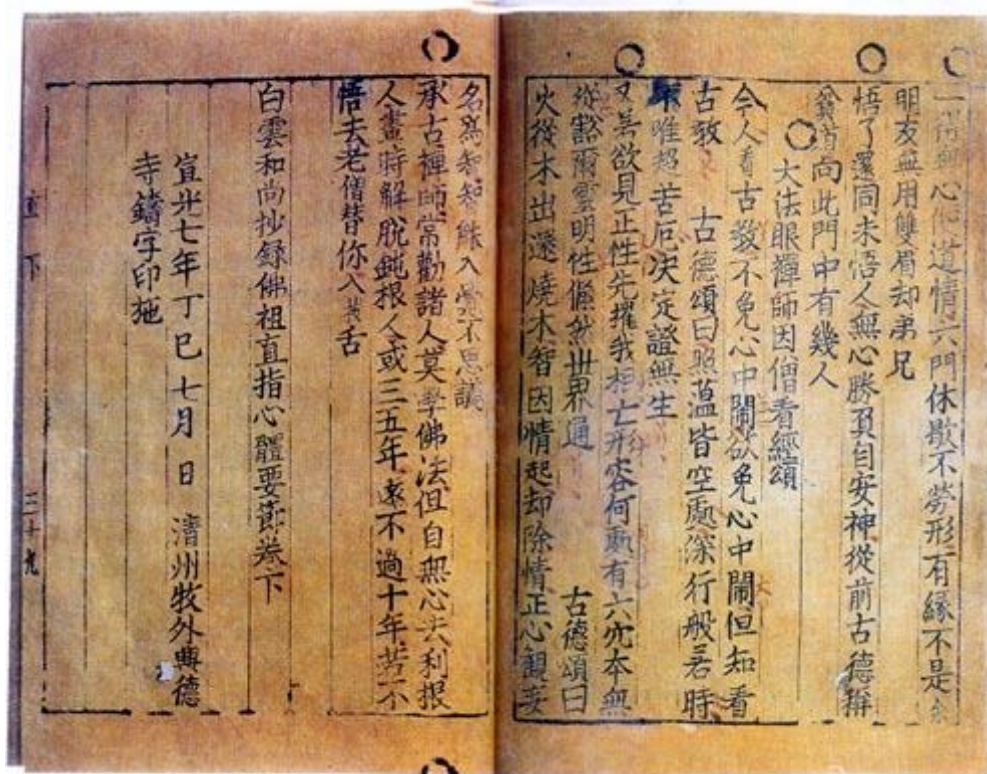 一得無心便道情六門休歇不勞形有緣不是余
明友無用雙眉却弟兄
悟了還同未悟人無心勝負自安神從前古德稱
貧道向此門中有幾人
大法眼禪師因僧看經頌
今人看古教不免心中閙欲免心中閙但知看
古教 古德頌曰照蘊皆空處深行般若時
唯超苦厄決定證無生
又善欲見正性先摧我相亡形容何處有六穴本無
從豁爾雲明性翛然世界通 古德頌曰
火從木出還燒木智因情起却除情正心觀妄
名為智智能入 不思議
承古禪師常勸諸人莫學佛法但自無心去利根
人晝時解脫鈍根人或三五年遠不過十年若不
悟去老僧替你入 舌
白雲和尚抄錄佛祖直指心體要節卷下
宣光七年丁巳七月 日 清州牧外興德
寺鑄字印施
直下
三十九